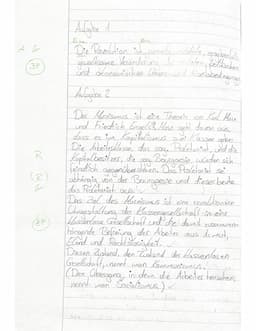 Aufgabe 1
Die Revolution ist
gewaltsame Veränderung
und ökonomischen
Aufgabe 2
Der Marxismus ist eine Theorie von Karl Marx
und Friedrich Engels. Marx geht davon aus,
dass es im Kapitalismus zwei Klassen gibt.
Die Arbeiterklasse, das sog. Proletariat, und die
Kapitalbesitzer, die sog. Bourgeoisie, würden sich
feindlich gegenüberstehen. Das Proletariat sei
abhängig von der Bourgeoisie und diese beute
das Proletariat aus.
Das Ziel des Marxismus ist eine revolutionäre
Umgestaltung der Klassengesellschaft in eine
klassenlose Gesellschaft und die damit zusammen-
hängende Befreiung der Arbeiter aus Armut,
Elend und Rechtlosigkeit.
Diesen Zustand, den Zustand der klassenlosen
Gesellschaft, nennt man Kommunismus.
(Den Übergang, in dem die Arbeiter herrschen,
nennt man Sozialismus.)